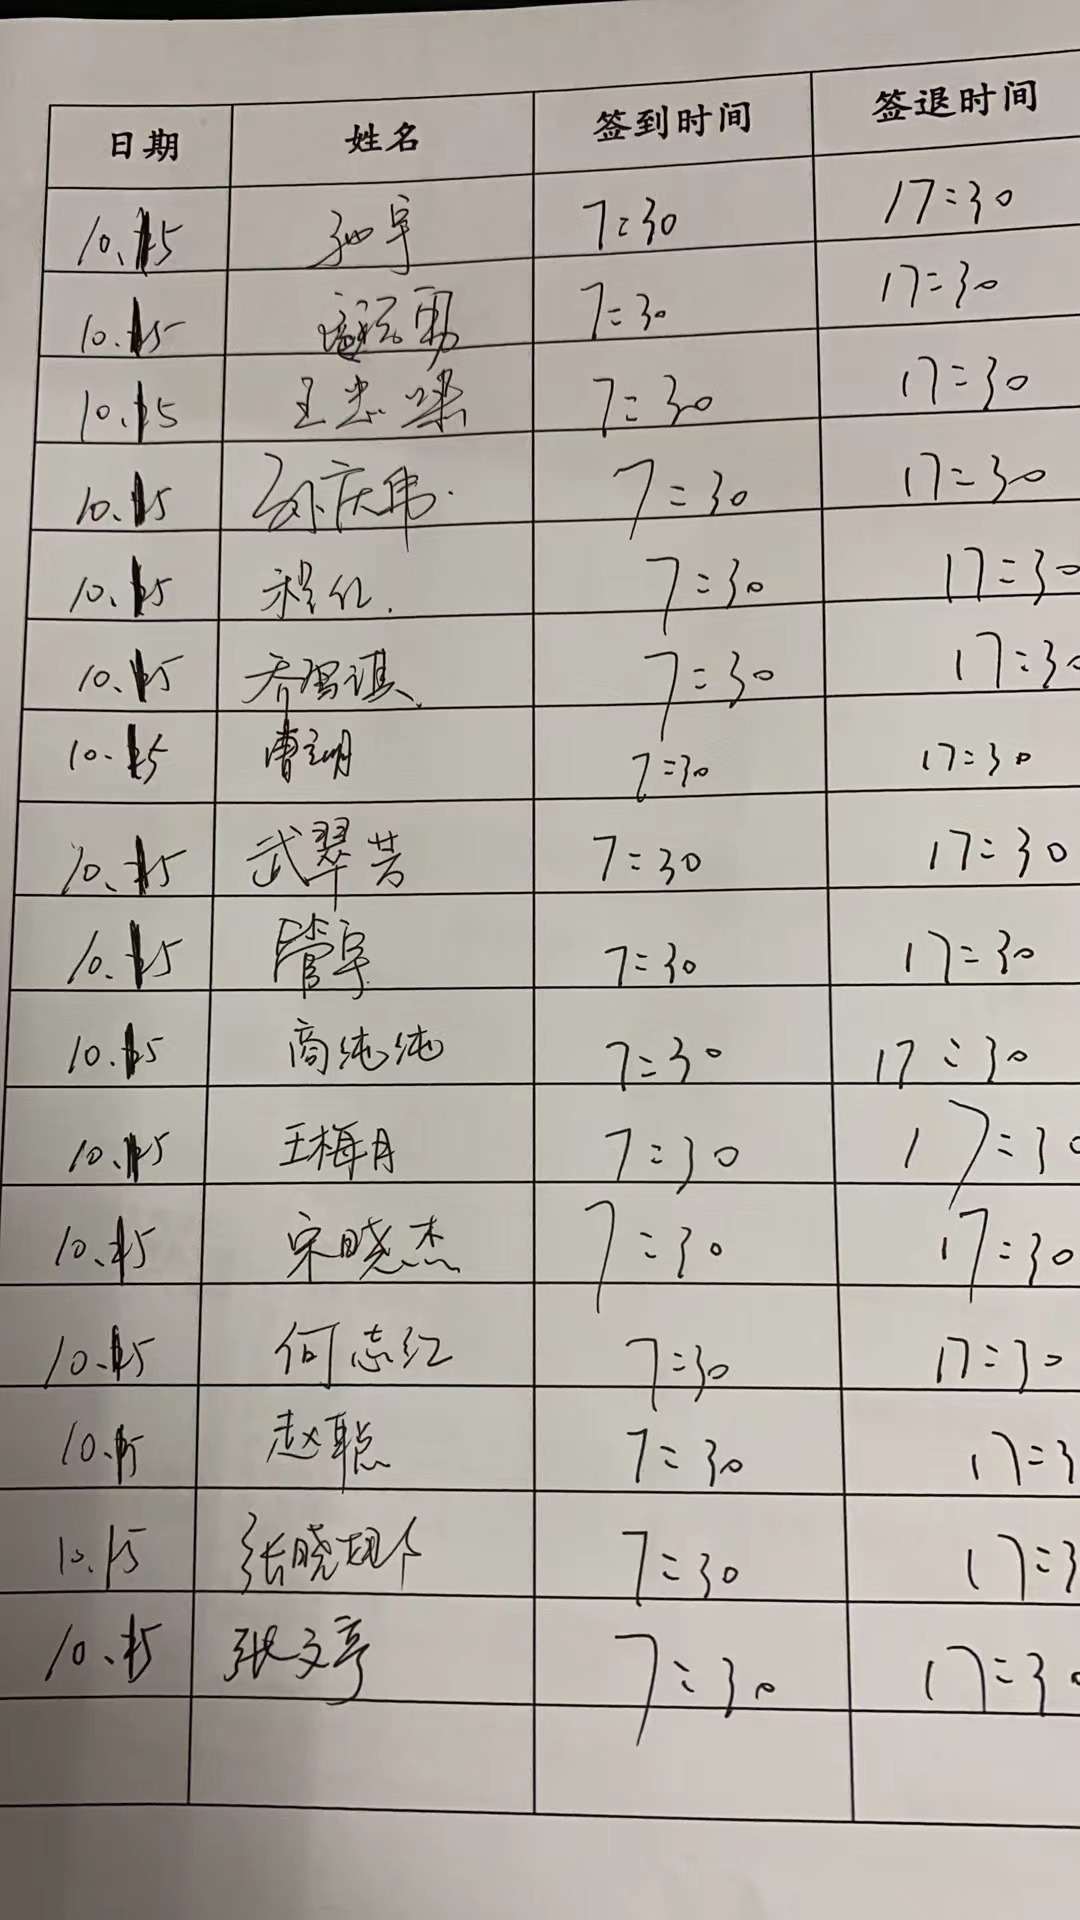 日期 姓名 签到时间 签退时间
10.15 7:30 17:30
10.15 7:30 17:30
10.15 王忠梁 7:30 17:30
10.15 孙庆伟 7:30 17:30
10.15 7:30 17:30
10.15 乔 琪 7:30 17:30
10.15 曹 明 7:30 17:30
10.15 武翠芳 7:30 17:30
10.15 管宇 7:30 17:30
10.15 商纯纯 7:30 17:30
10.15 王梅月 7:30 17:30
10.15 宋晓杰 7:30 17:30
10.15 何志红 7:30 17:30
10.15 赵聪 7:30 17:3
10.15 张晓 7:30 17:3
10.15 张文亭 7:30 17:30